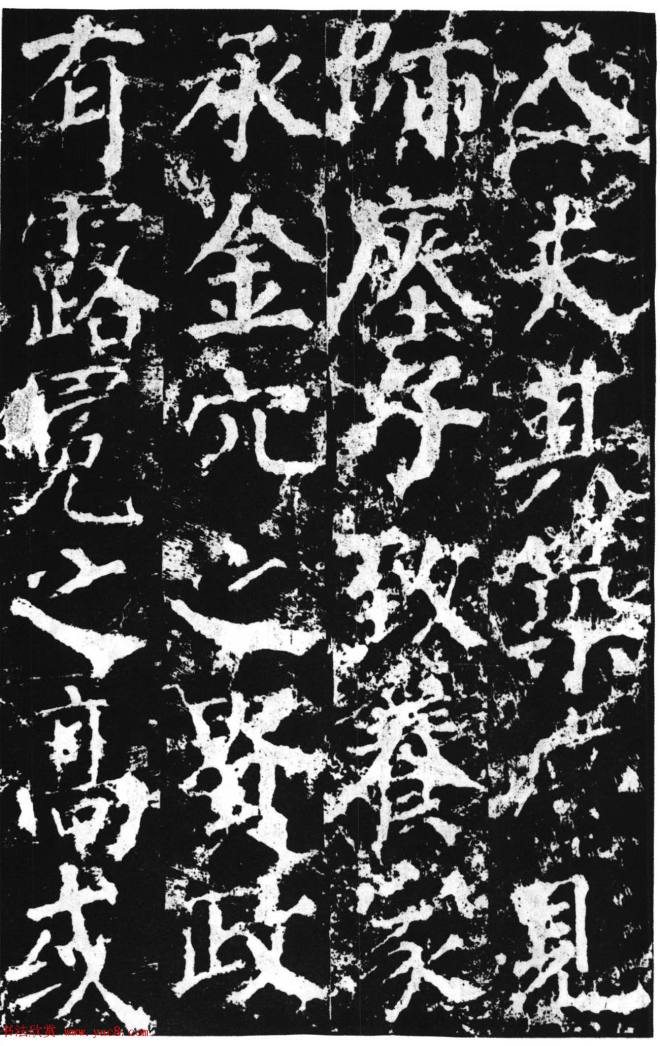 夫其築見
歸瘞子致養家
承金穴之賢政
有露冕之高或
书法欣赏 www.yac8.com